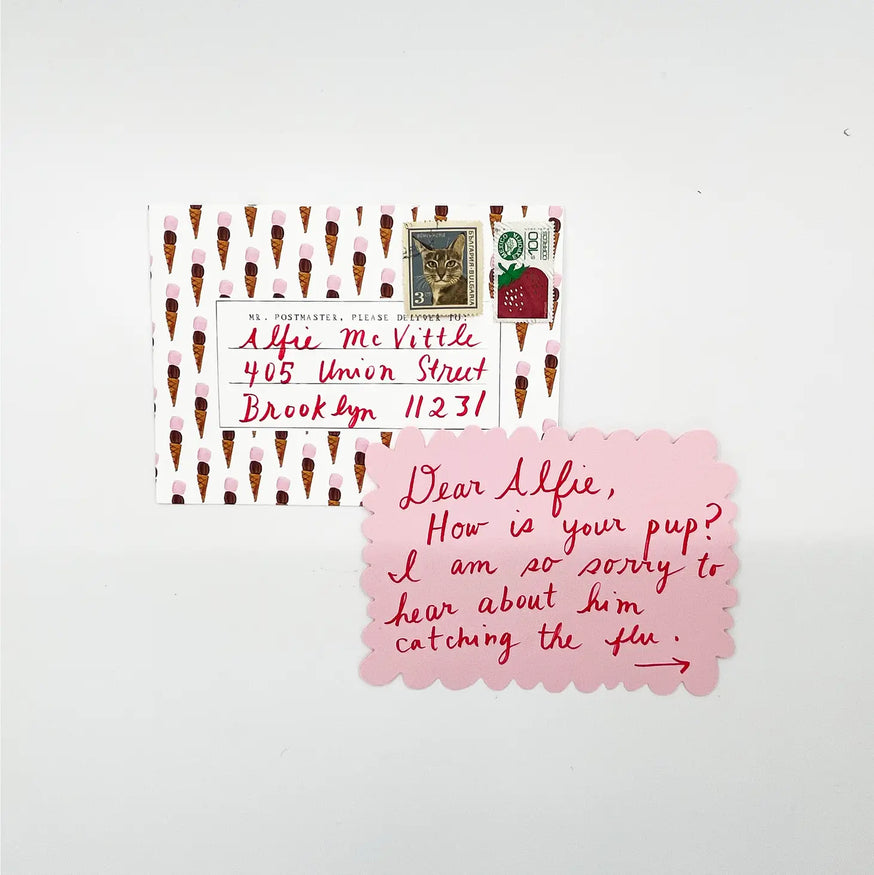 БЪЛГАРИЯ·BULGARIA
3
MR. POSTMASTER, PLEASE DELIVER TO:
Alfie McVittle
405 Union Street
Brooklyn 11231
Dear Alfie,
How is your pup?
I am so sorry to
hear about him
catching the flu.